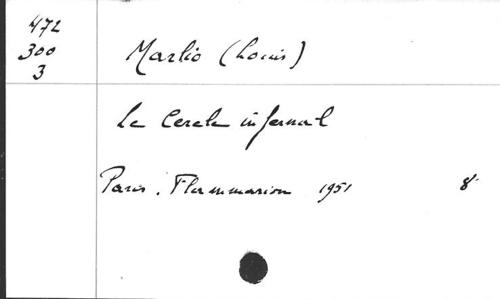 472
300
3
Marlio (Louis)
Le Cercle infernal
Paris. Flammarion 1951 8°